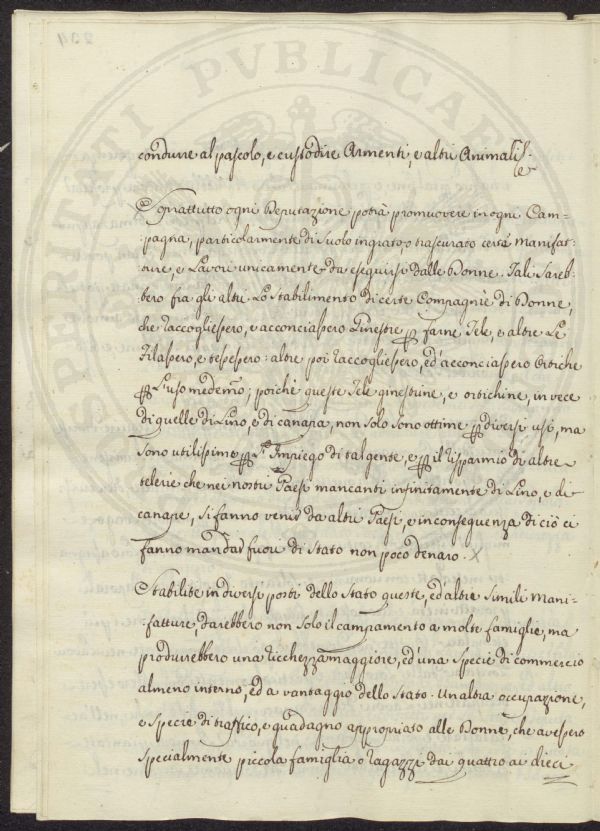 234
PROSPERITATI PVBLICAE
condurre al pascolo, e custodire Armenti, e altri Animali &c.
Soprattutto ogni Deputazione potrà promuovere in ogni Cam=
pagna, particolarmente di Suolo ingrato, o trascurato certe Manifat=
ture, e Lavori unicamente da eseguirsi dalle Donne. Tali Sareb=
bero fra gli altri Lo Stabilimento di certe Compagnie di Donne,
che raccogliessero, e acconciassero Ginestre per farne Tele, e altre Le
Filassero, e tessessero: altre poi raccogliessero, ed'acconciassero Ortiche
per L'uso medemo; poichè queste Tele ginestrine, e ortichine, in vece
di quelle di Lino, e di canapa, non solo sono ottime per diversi usi, ma
sono utilissime per l'Impiego di tal gente, e per il risparmio di altre
telerie che nei nostri Paesi mancanti infinitamente di Lino, e di
canape, si fanno venir da altri Paesi, e in conseguenza di ciò ci
fanno mandar fuori di Stato non poco denaro. X
Stabilite in diversi posti dello Stato queste, ed'altre Simili Mani=
fatture, darebbero non solo il campamento a molte famiglie, ma
produrrebbero una ricchezza maggiore, ed'una Specie di commercio
almeno interno, ed a vantaggio dello Stato. Un altra occupazione,
e specie di traffico, e guadagno appropriato alle Donne, che avessero
specialmente piccola famiglia o ragazzi dai quattro ai dieci